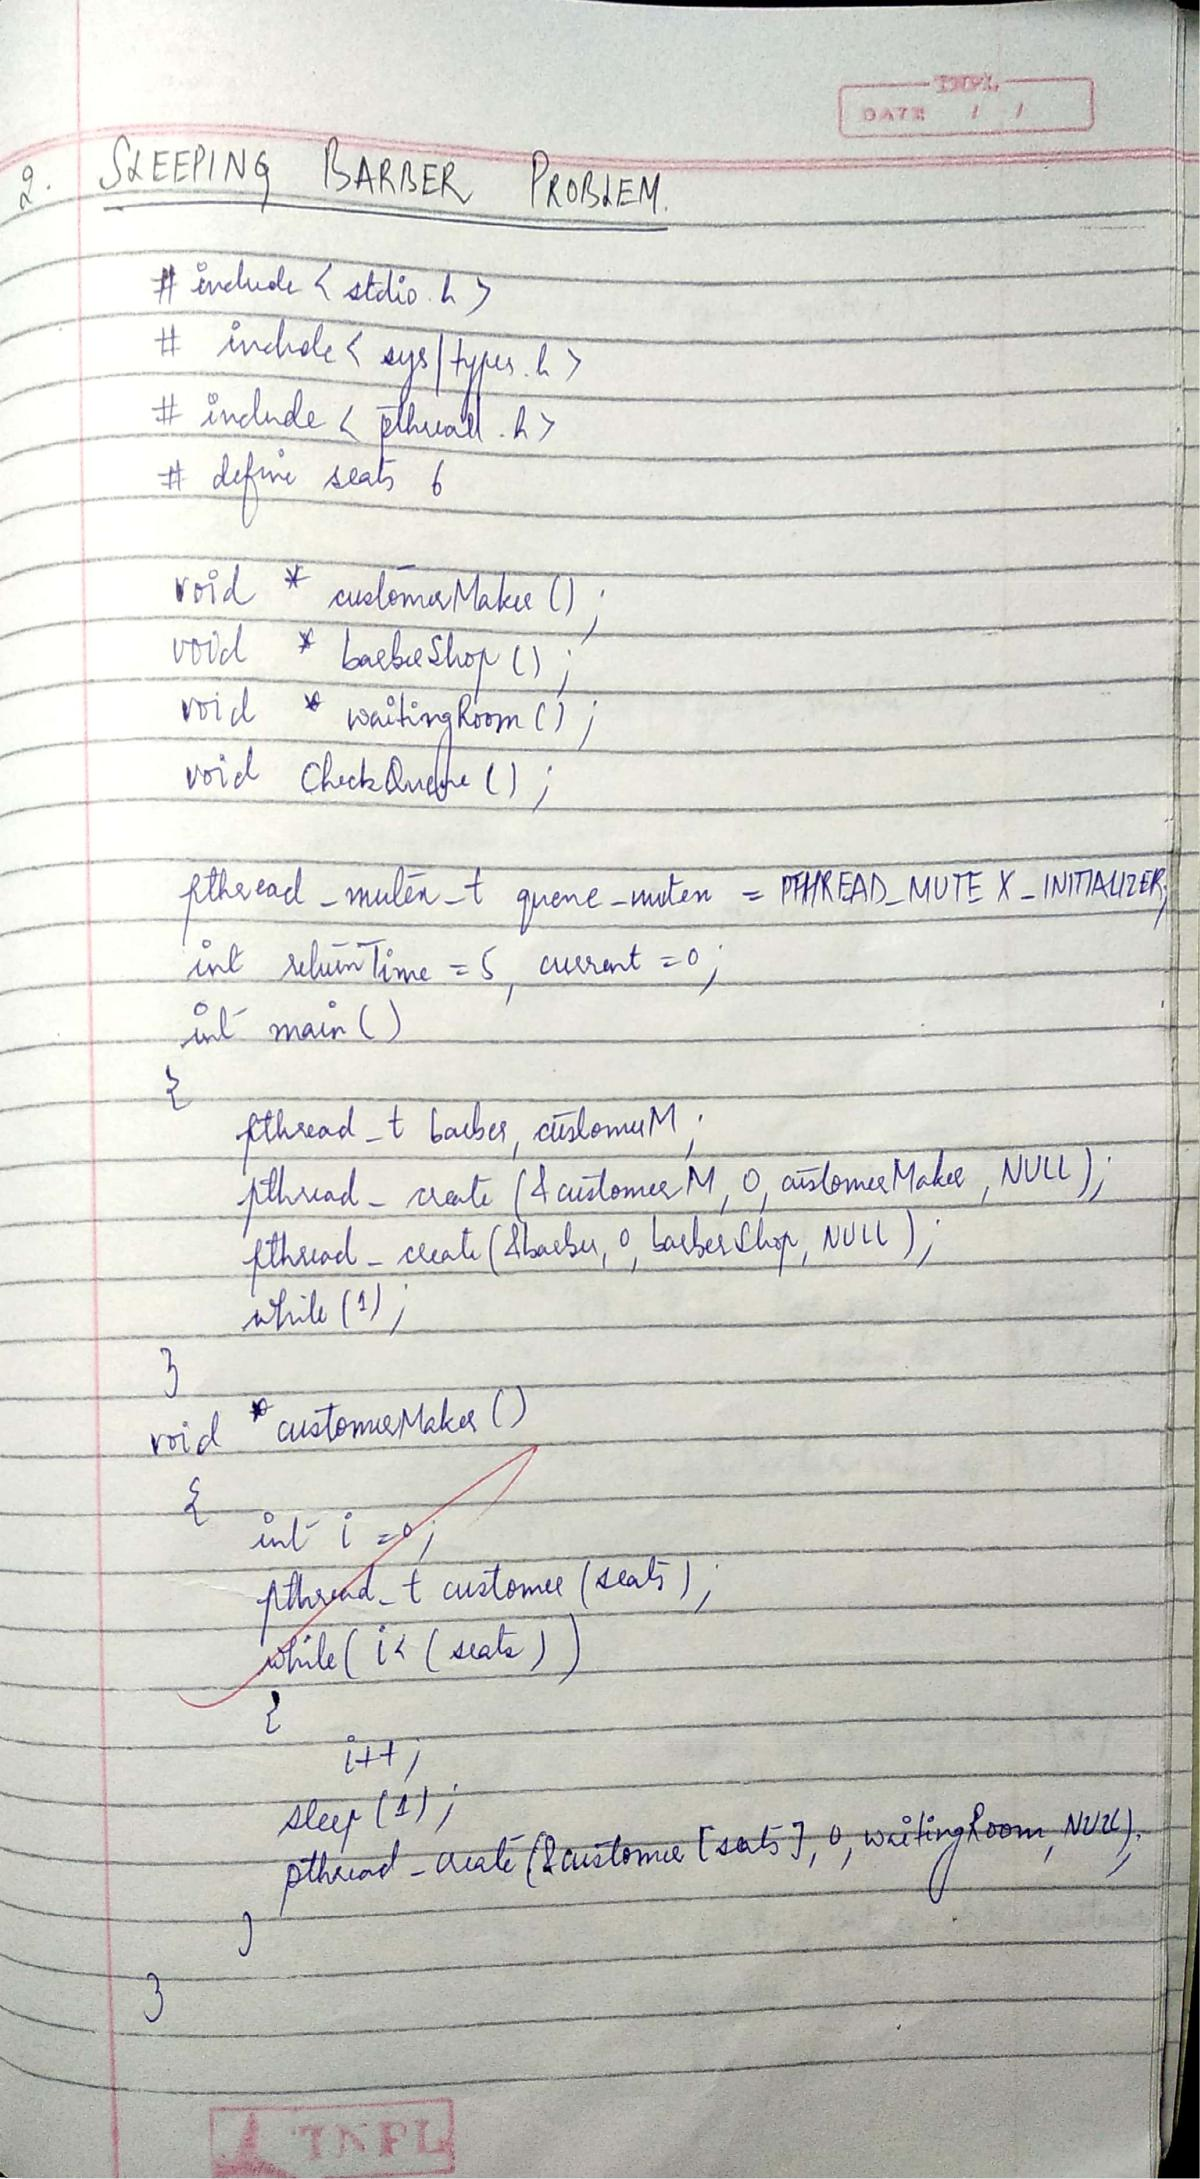 TNPL
DATE / /
2. SLEEPING BARBER PROBLEM.
# include < stdio.h >
# include < sys/types.h >
# include < pthread.h >
# define seats 6
void * customerMaker();
void * barberShop();
void * waitingRoom();
void CheckQueue();
pthread_mutex_t queue_mutex = PTHREAD_MUTEX_INITIALIZER;
int returnTime = 5, current = 0;
int main()
{
pthread_t barber, customerM;
pthread_create (&customerM, 0, customerMaker, NULL);
pthread_create (&barber, 0, barberShop, NULL);
while (1);
}
void *customerMaker()
{
int i = 0;
pthread_t customer (seats);
while( i< (seats))
{
i++;
sleep (1);
pthread_create (&customer [seats], 0, waitingRoom, NULL);
}
}
TNPL